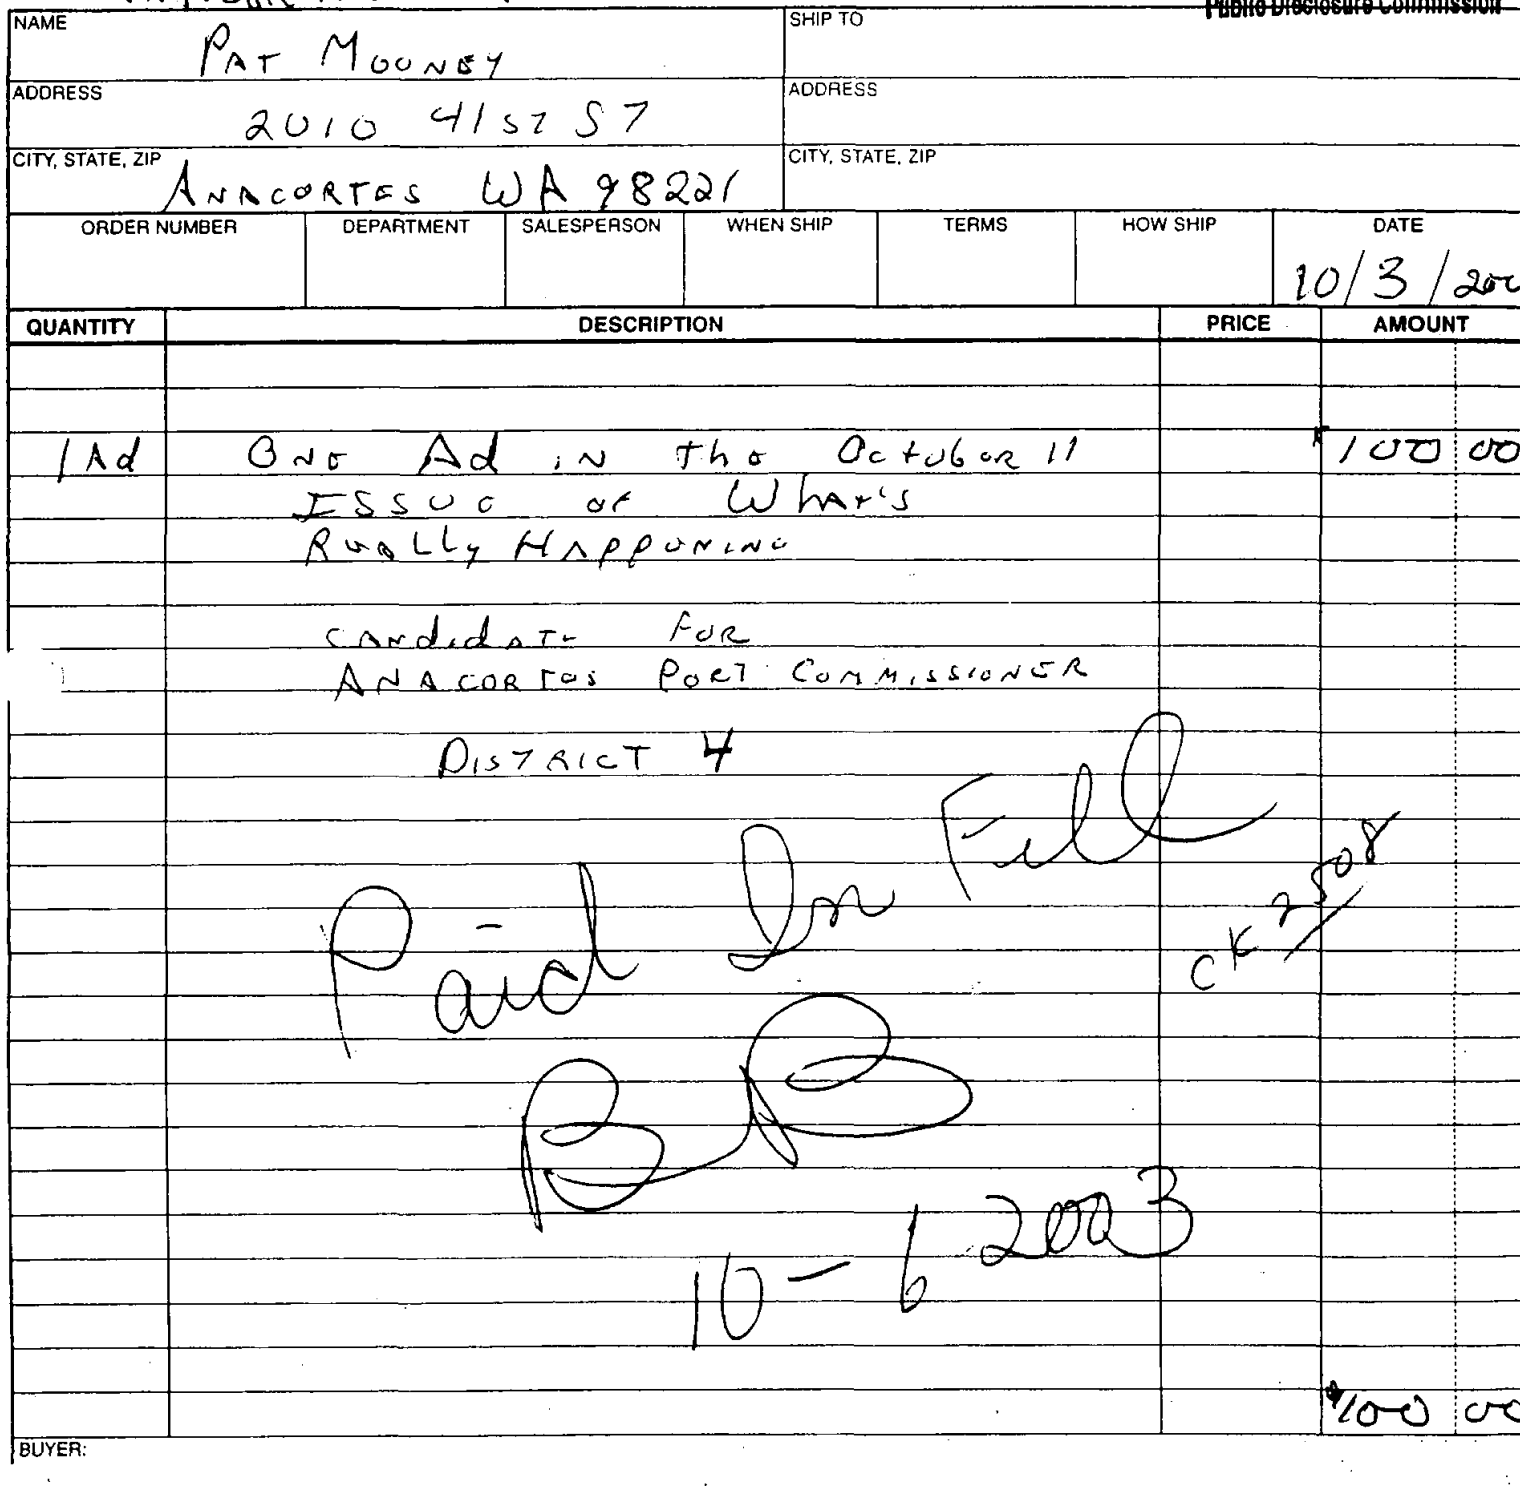 Public Disclosure Commission
NAME
PAT MOONEY
SHIP TO
ADDRESS
2010 41ST ST
ADDRESS
CITY, STATE, ZIP
ANACORTES WA 98221
CITY, STATE, ZIP
ORDER NUMBER DEPARTMENT SALESPERSON WHEN SHIP TERMS HOW SHIP DATE
10/3/200
QUANTITY DESCRIPTION PRICE AMOUNT
1 Ad ONE Ad IN The October 11 $100 00
ISSUE OF WhAt's
REALLy HAPPENING
CANdidATE FOR
ANACORTES PORT COMMISSIONER
DISTRICT 4
Paid In Full
CK 2508
10-6 2003
$100 00
BUYER: